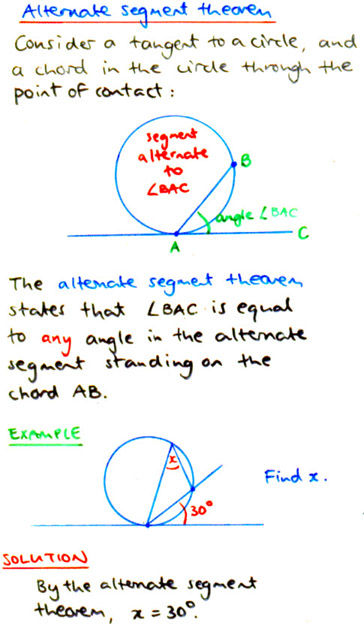 Alternate segment theorem
Consider a tangent to a circle, and
a chord in the circle through the
point of contact :
segment
alternate
to
∠BAC
B
angle ∠BAC
A
C
The alternate segment theorem
states that ∠BAC is equal
to any angle in the alternate
segment standing on the
chord AB.
EXAMPLE
x
Find x.
30°
SOLUTION
By the alternate segment
theorem, x = 30°.